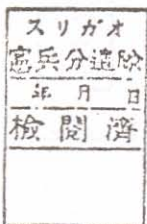 スリガオ
憲兵分遣隊
年 月 日
検閲済